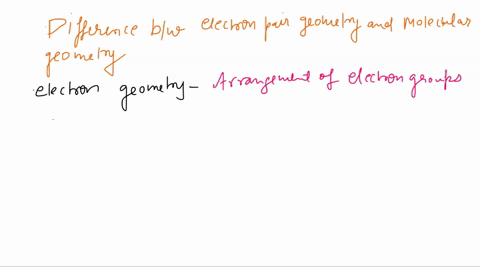 Difference b/w electron pair geometry and Molecular
geometry
electron geometry - Arrangement of electron groups